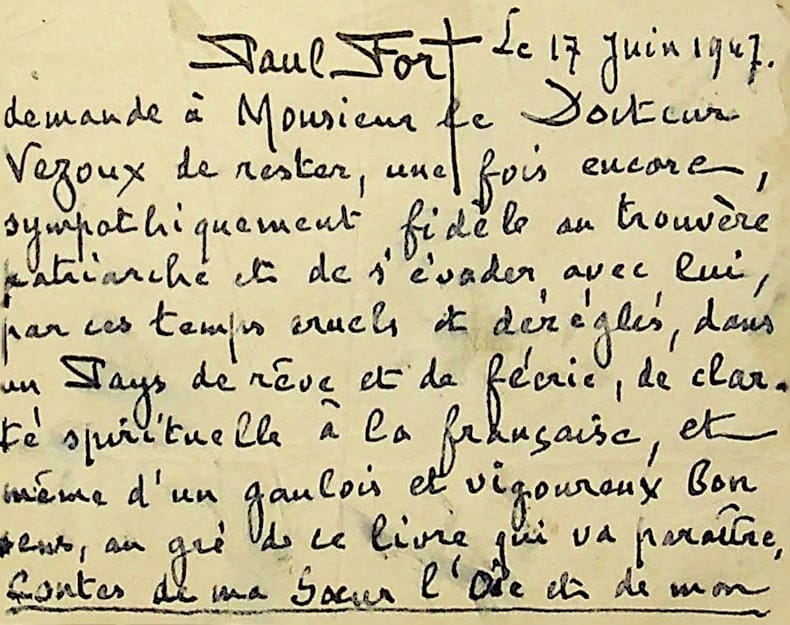 Paul Fort Le 17 Juin 1947.
demande à Monsieur le Docteur
Vezoux de rester, une fois encore,
sympathiquement fidèle au trouvère
patriarche et de s'évader avec lui,
par ces temps cruels et déréglés, dans
un Pays de rêve et de féerie, de clar-
té spirituelle à la française, et
même d'un gaulois et vigoureux Bon
sens, au gré de ce livre qui va paraître,
Contes de ma Sœur l'Oie et de mon